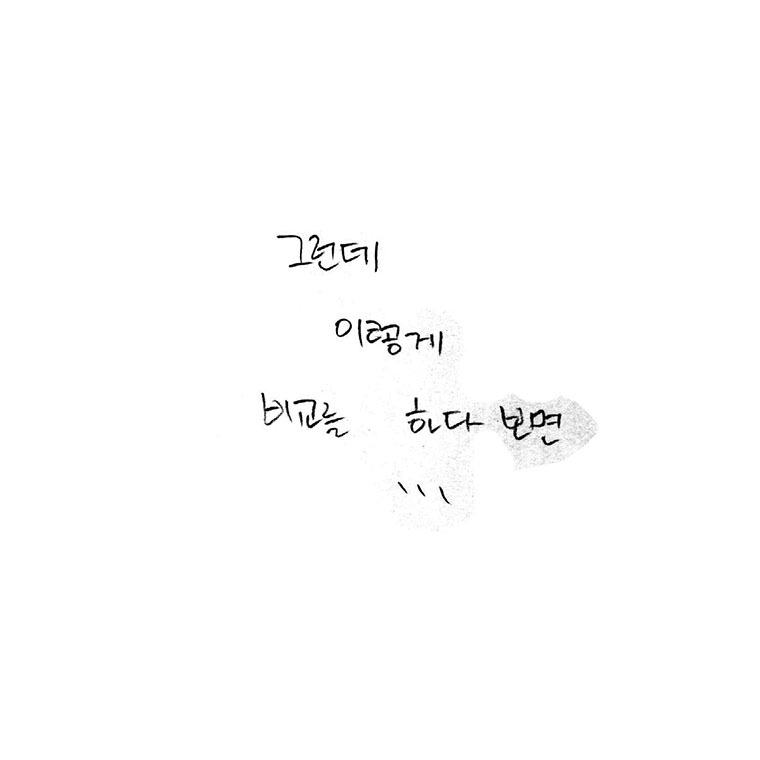 그런데
이렇게
비교를 하다 보면
...